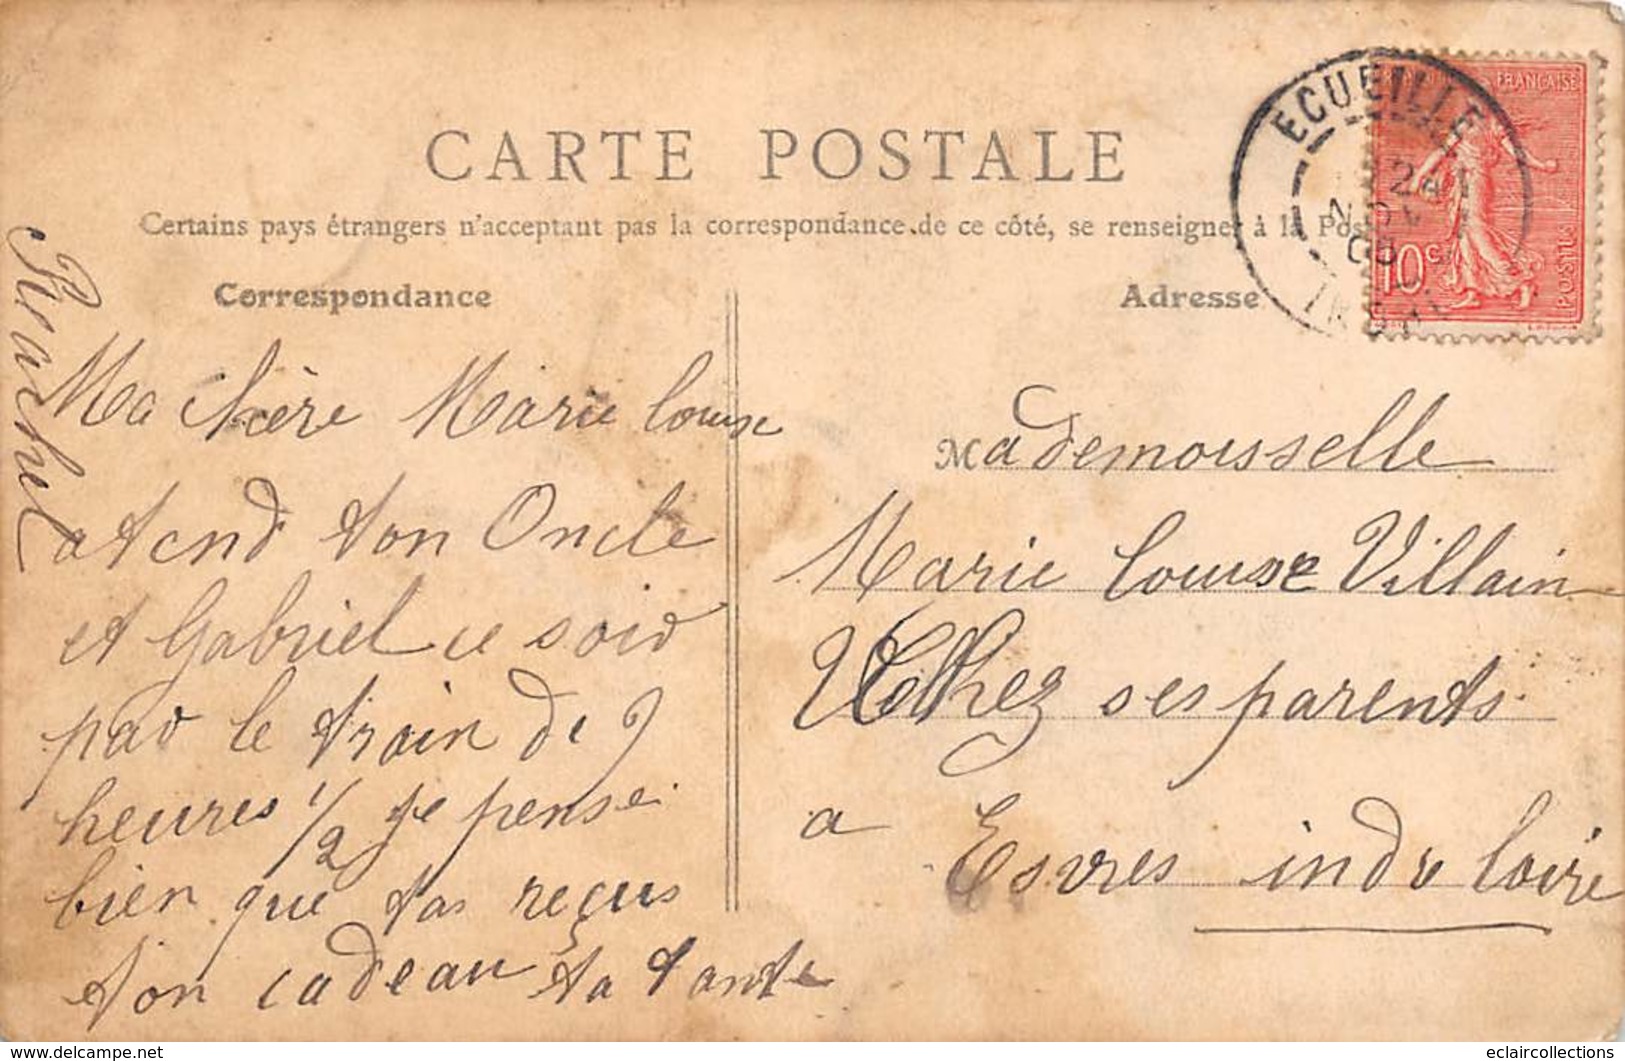 CARTE POSTALE
Certains pays étrangers n'acceptant pas la correspondance de ce côté, se renseigner à la Pos
Correspondance
Ma chère Marie Louise
atend ton Oncle
et Gabriel ce soir
par le train de 9
heures 1/2 je pense
bien que tas reçus
ton cadeau ta tante
Rachel
Adresse
Mademoisselle
Marie Louise Villain
Chez ses parents
a Esvres indre Loire
ECUEILLE
12
NOV
05
INDRE
FRANÇAISE
10 c
POSTES
eclaircollections